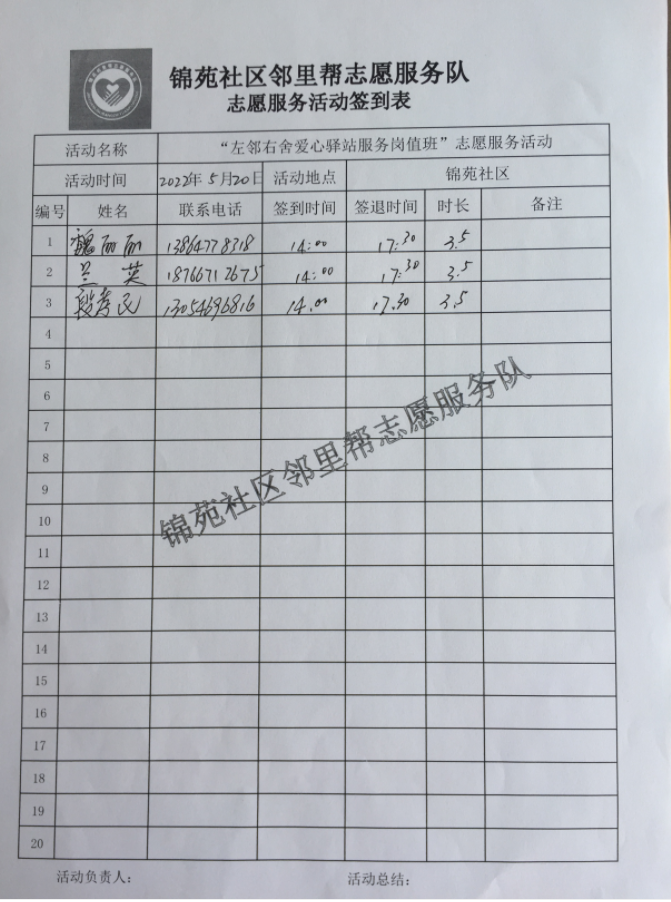 锦苑社区邻里帮志愿服务队
志愿服务活动签到表
活动名称 “左邻右舍爱心驿站服务岗值班”志愿服务活动
活动时间 2022年5月20日 活动地点 锦苑社区
编号 姓名 联系电话 签到时间 签退时间 时长 备注
1 魏丽丽 13864778318 14:00 17:30 3.5
2 兰英 18766712675 14:00 17:30 3.5
3 段孝民 13054696816 14.00 17.30 3.5
4
5
6
7
8
9
10
11
12
13
14
15
16
17
18
19
20
锦苑社区邻里帮志愿服务队
活动负责人: 活动总结: